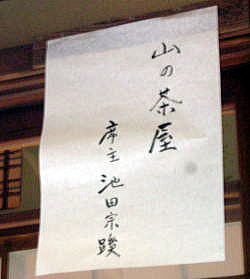 山の茶屋
席主 池田宗蹊